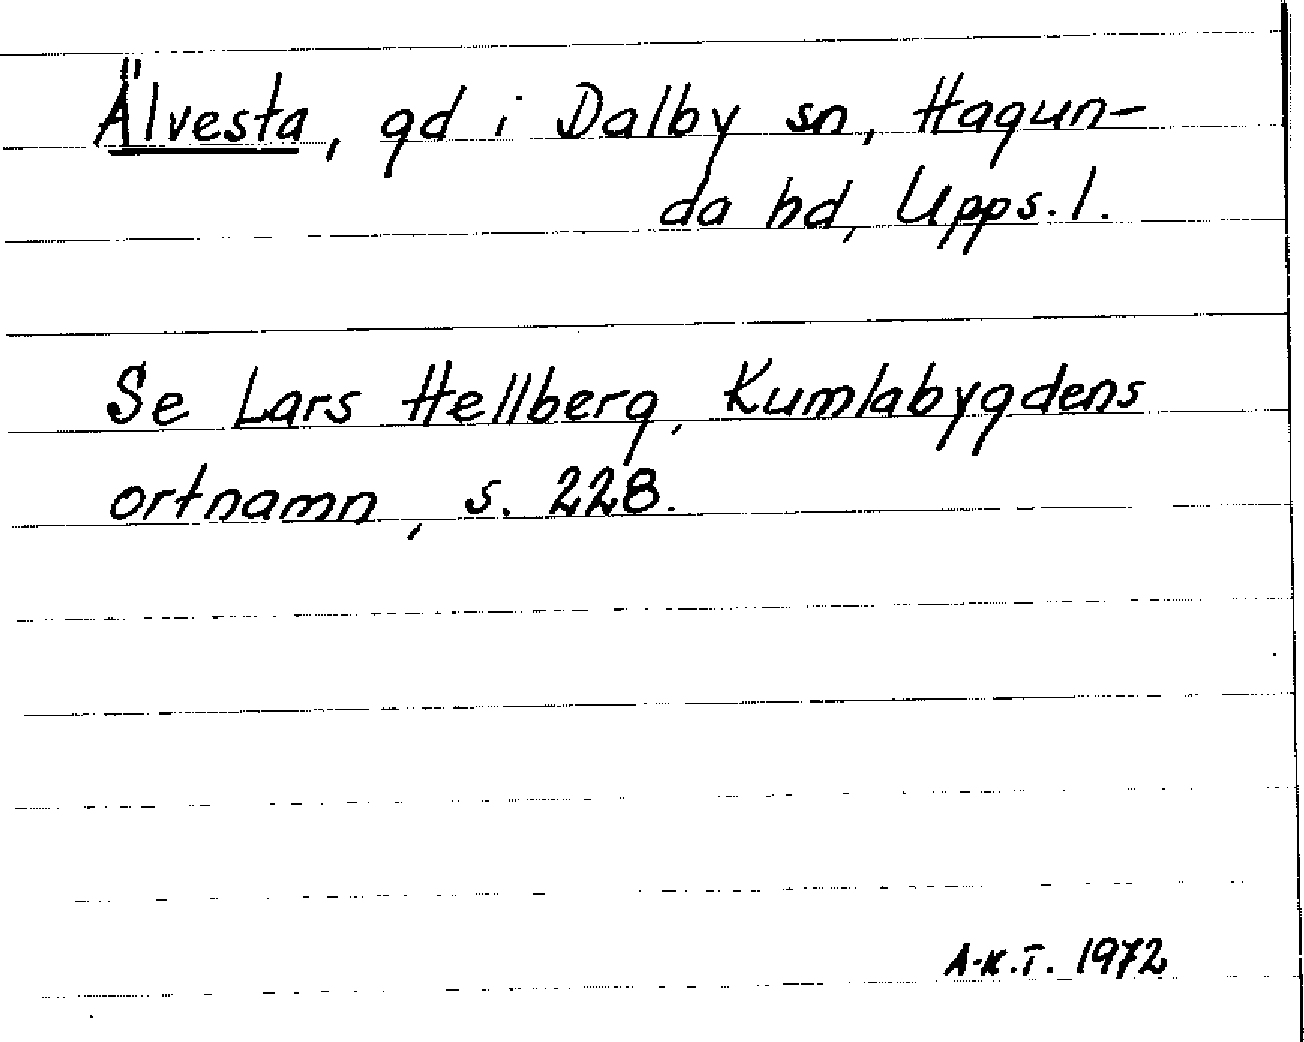 Älvesta, gd i Dalby sn, Hagun-
da hd, Upps. l.
Se Lars Hellberg, Kumlabygdens
ortnamn, s. 228.
A-K.T. 1972